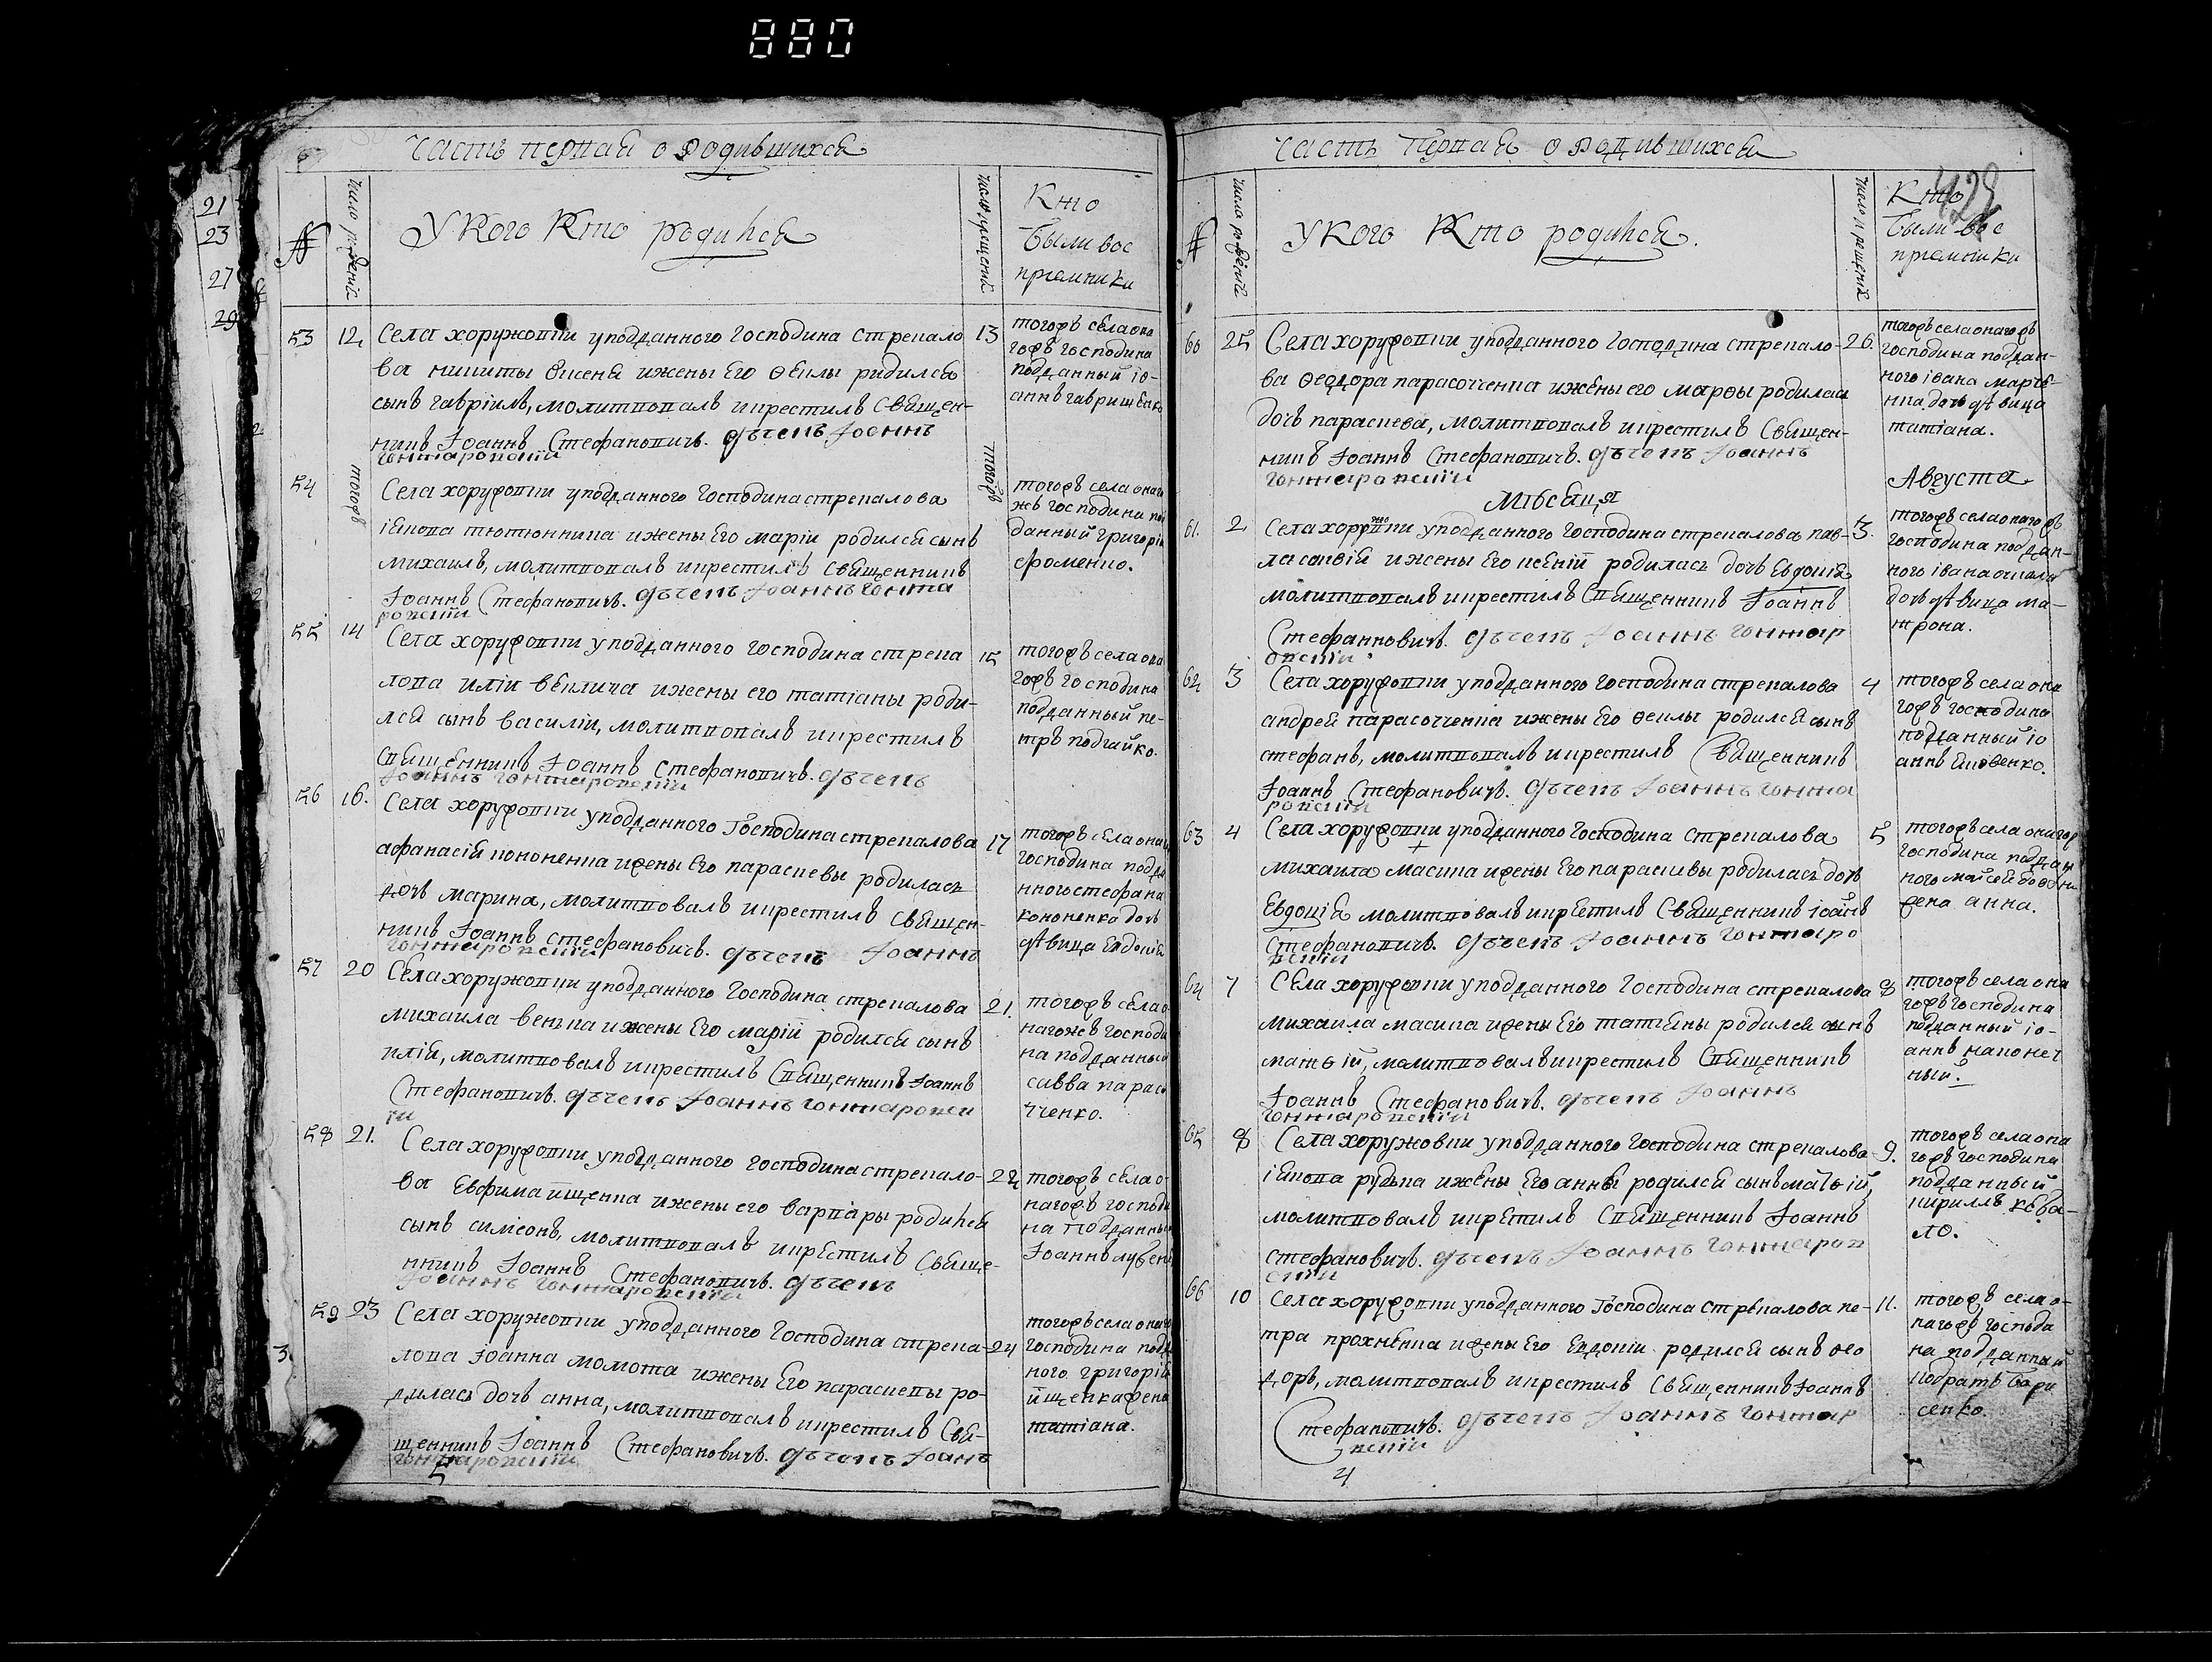 880
21
23
27
29
3.
Часть первая о родившихся
№
число рождений
У кого кто родился
число крещений
Кто
были вос
приемники
53 12 Села хоружовки у подданного господина стрепало 13
ва никиты ѳисена и жены его ѳеклы родился
сынъ гавріилъ, молитвовалъ и крестилъ священ-
никъ Іоаннъ Стефановичъ. дьячекъ Іоаннъ
гонтаровскій
тогожъ села она
гожъ господина
подданный іо-
аннъ гавришенко
54 тогожъ Села хоружовки у подданного господина стрепалова тогожъ
іякова тютюнника и жены его маріи родился сынъ
михаилъ, молитвовалъ и крестилъ священникъ
Іоаннъ Стефановичъ. дьячекъ Іоаннъ гонта
ровскій
тогожъ села онаго
жъ господина под
данный григорій
фоменко.
55 14 Села хоружовки у подданного господина стрепа 15
лова иліи величка и жены его татіаны роди-
лся сынъ василій, молитвовалъ и крестилъ
священникъ Іоаннъ Стефановичъ. дьячекъ
Іоаннъ гонтаровскій
тогожъ села она
гожъ господина
подданный пе-
тръ подгайко.
56 16. Села хоружовки у подданного господина стрепалова 17
афанасія кононенка и жены его параскевы родилась
дочь марина, молитвовалъ и крестилъ священ-
никъ Іоаннъ стефановичъ. дьячекъ Іоаннъ
гонтаровскій
тогожъ села онаго
господина подда
нного стефана
кононенка дочь
дѣвица евдокія
57 20 Села хоружовки у подданного господина стрепалова 21.
михаила и жены его маріи родился сынъ
илія, молитвовалъ и крестилъ священникъ Іоаннъ
Стефановичъ. дьячекъ Іоаннъ гонтаровск
ій
тогожъ села о-
нагожъ господи
на подданный
савва парасо
чченко.
58 21. Села хоружовки у подданного господина стрепало- 22
ва Евфима йщенка и жены его варвары родился
сынъ симеонъ, молитвовалъ и крестилъ свяще-
нникъ Іоаннъ Стефановичъ. дьячекъ
Іоаннъ гонтаровскій
тогожъ села о-
нагожъ господи
на подданный
Іоаннъ
59 23 Села хоружовки у подданного господина стрепа- 24
лова Іоанна момота и жены его параскевы ро-
дилась дочь анна, молитвовалъ и крестилъ свя-
щенникъ Іоаннъ Стефановичъ. дьячекъ Іоаннъ
гонтаровскій
5
тогожъ села онаго
господина подда
ного григорія
йщенка жена
татіана.
Часть первая о родившихся
429
№
число рождений
У кого кто родился.
число крещений
Кто
были вос
приемники
60 25 Села хоружовки у подданного господина стрепало- 26.
ва ѳеодора парасочченка и жены его марѳы родилась
дочь параскева, молитвовалъ и крестилъ священ-
никъ Іоаннъ Стефановичъ. дьячекъ Іоаннъ
гонтаровскій
тогожъ села онагожъ
господина поддан-
ного івана марче-
нка дочь дѣвица
татіана.
мѣсяця Августа
61. 2 Села хоружовки у подданного господина стрепалова пав- 3.
ла и жены его ксеніи родилась дочь Евдокія
молитвовалъ и крестилъ священникъ Іоаннъ
Стефанновичъ. дьячекъ Іоаннъ гонтар
овскій
тогожъ села онагожъ
господина поддан-
ного івана
дочь дѣвица ма-
трона.
62 3 Села хоружовки у подданного господина стрепалова 4
андрея парасоченка и жены его ѳеклы родился сынъ
стефанъ, молитвовалъ и крестилъ священникъ
Іоаннъ Стефановичъ. дьячекъ Іоаннъ гонта
ровскій
тогожъ села она
гожъ господина
подданный іо
аннъ яковенко.
63 4 Села хоружовки у подданного господина стрепалова 5
михаила масича и жены его параскевы родилась дочь
Евдокія молитвовалъ и крестилъ священникъ іоаннъ
Стефановичъ. дьячекъ Іоаннъ гонтаро
вскій
тогожъ села онагожъ
господина поддан
ного мойсея
жена анна.
64 7 Села хоружовки у подданного господина стрепалова 8
михаила масича и жены его татіяны родился сынъ
матѳій, молитвовалъ и крестилъ священникъ
Іоаннъ Стефановичъ. дьячекъ Іоаннъ
гонтаровскій
тогожъ села она
гожъ господина
подданный іо-
аннъ наконеч
ный.
65 8 Села хоружовки у подданного господина стрепалова 9.
іякова рудька и жены его анны родился сынъ матѳій,
молитвовалъ и крестилъ священникъ Іоаннъ
стефановичъ. дьячекъ Іоаннъ гонтаров
скій
тогожъ села она
гожъ господина
подданный
кириллъ кева-
ло.
66 10 Села хоружовки у подданного господина стрепалова пе- 11.
тра прохненка и жены его Евдокіи родился сынъ ѳео
доръ, молитвовалъ и крестилъ священникъ Іоаннъ
Стефановичъ. дьячекъ Іоаннъ гонтар
овскій
4
тогожъ села о-
нагожъ господи
на подданный
кодратъ бори
сенко.